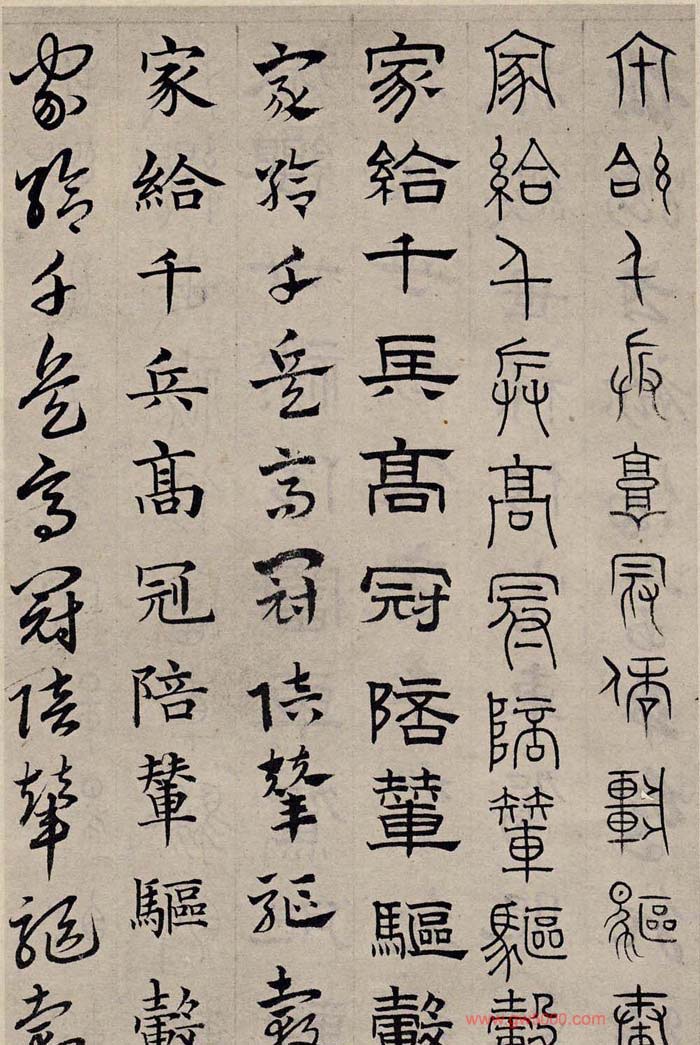 家給千兵高冠陪輦驅轂
家給千兵髙冠陪輦驅轂
家給千兵髙冠陪輦驅轂
家給千兵高冠陪輦驅轂
家給千兵髙冠陪輦驅轂
家給千兵高冠陪輦驅轂